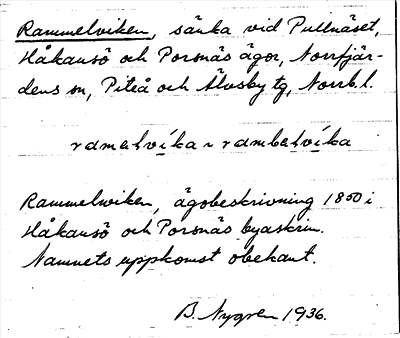 Rammelviken, sänka vid Pullnäset,
Håkansö och Porsnäs ägor, Norrfjär-
dens sn, Piteå och Älvsby tg, Norrb. l.
ramelvíka ~ rambelvíka
Rammelwiken, ägobeskrivning 1850 i
Håkansö och Porsnäs byaskrin.
Namnets uppkomst obekant.
B. Nygren 1936.